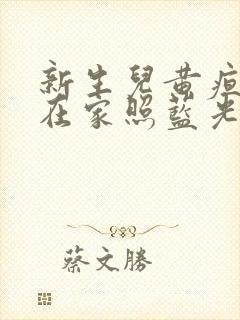 新生兒黃疸
在家照藍光
蔡文勝